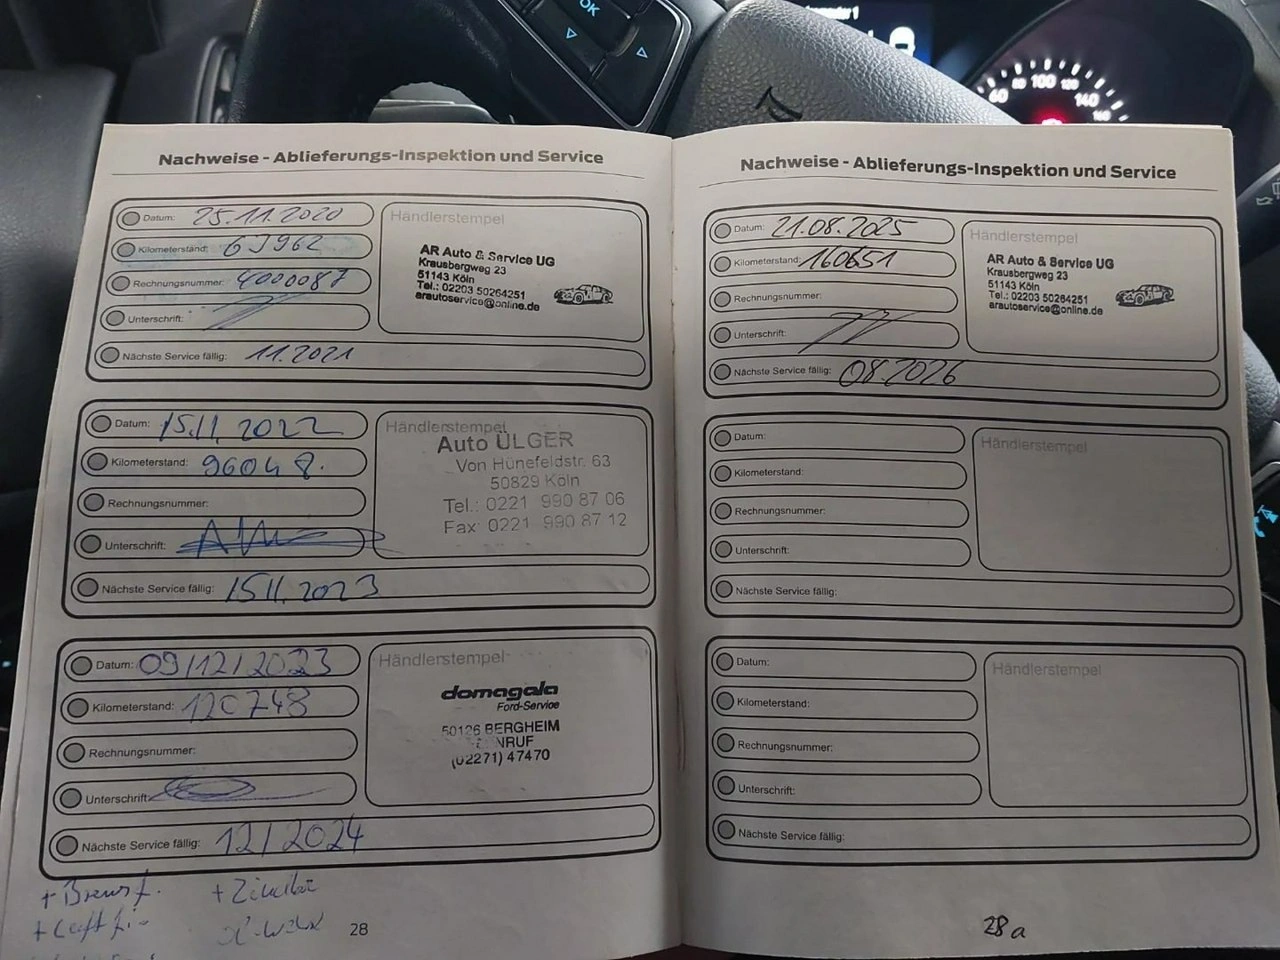 OK
60 80 100 120 140 160
Nachweise - Ablieferungs-Inspektion und Service
Datum: 25.11.2020
Kilometerstand: 63962
Rechnungsnummer: 4000087
Unterschrift:
Nächste Service fällig: 11.2021
Händlerstempel
AR Auto & Service UG
Krausbergweg 23
51143 Köln
Tel.: 02203 50264251
arautoservice@online.de
Datum: 15.11.2022
Kilometerstand: 96048.
Rechnungsnummer:
Unterschrift:
Nächste Service fällig: 15.11.2023
Händlerstempel
Auto ÜLGER
Von Hünefeldstr. 63
50829 Köln
Tel.: 0221 990 87 06
Fax 0221 990 87 12
Datum: 09/12/2023
Kilometerstand: 120748
Rechnungsnummer:
Unterschrift:
Nächste Service fällig: 12/2024
Händlerstempel
domagala
Ford-Service
50126 BERGHEIM
(02271) 47470
+ Bremsf.
28
Nachweise - Ablieferungs-Inspektion und Service
Datum: 21.08.2025
Kilometerstand: 160651
Rechnungsnummer:
Unterschrift:
Nächste Service fällig: 08.2026
Händlerstempel
AR Auto & Service UG
Krausbergweg 23
51143 Köln
Tel.: 02203 50264251
arautoservice@online.de
Datum:
Kilometerstand:
Rechnungsnummer:
Unterschrift:
Nächste Service fällig:
Händlerstempel
Datum:
Kilometerstand:
Rechnungsnummer:
Unterschrift:
Nächste Service fällig:
Händlerstempel
28a